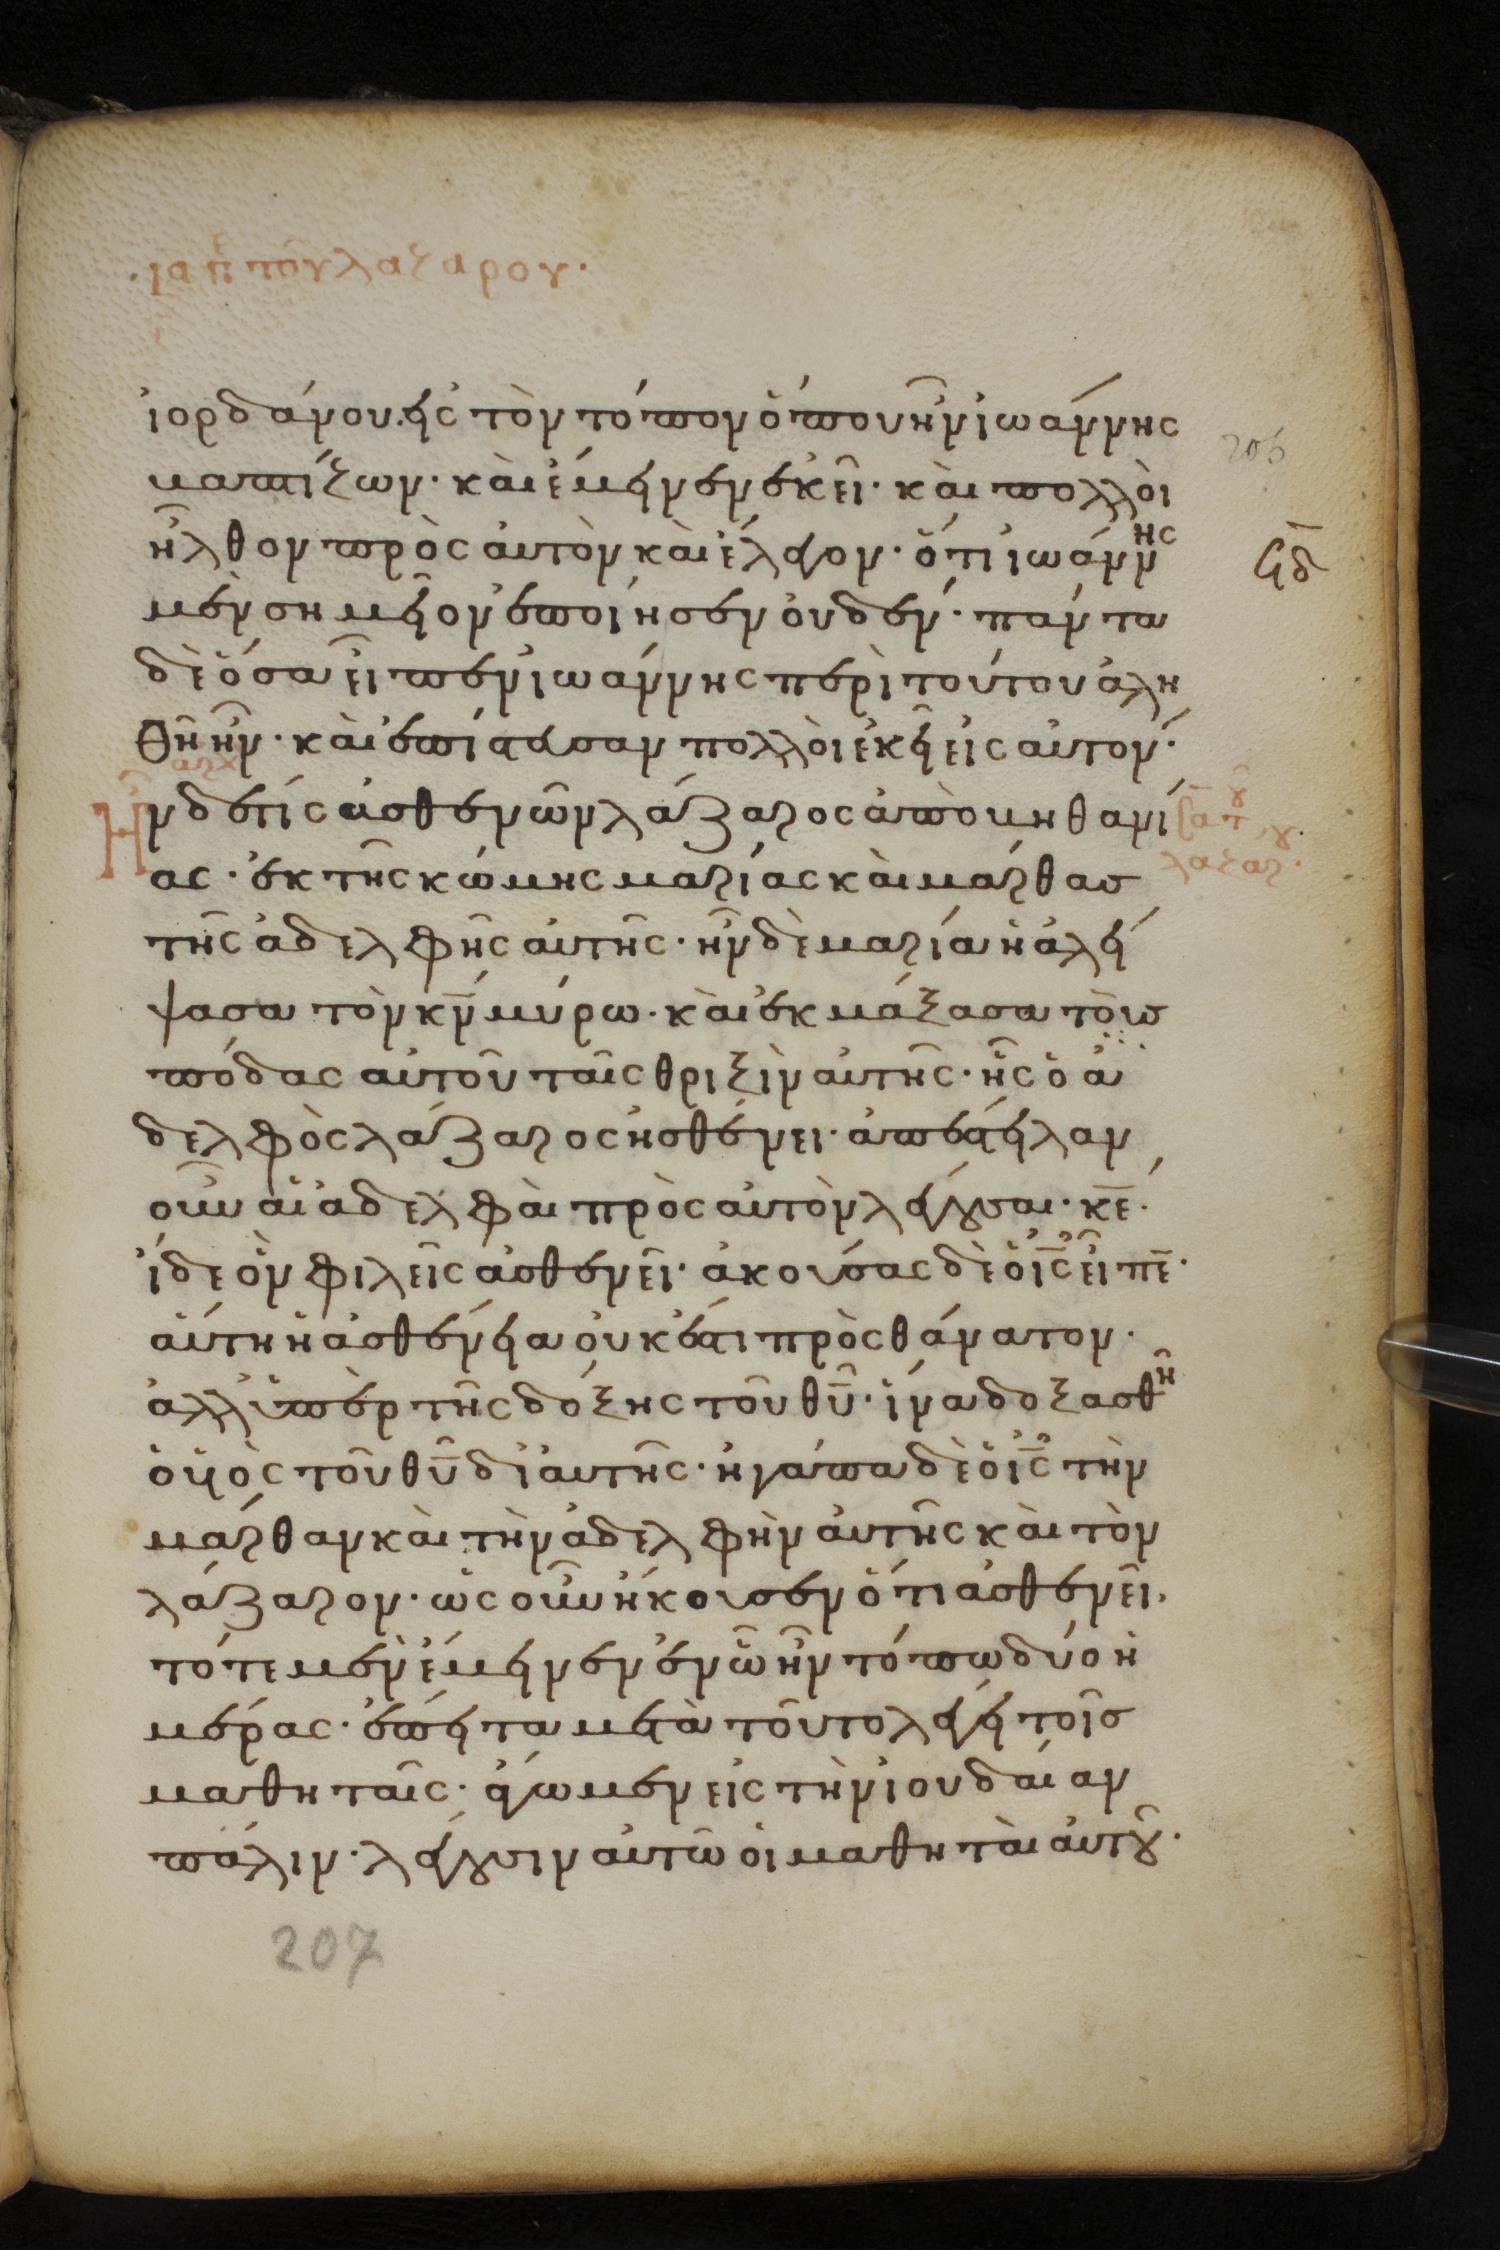 ·ια πε τοῦ λαζάρου·
ἰορδάνου. εἰς τὸν τόπον ὅπου ἦν ἰωάννης
βαπτίζων· καὶ ἔμεινεν ἐκεῖ· καὶ πολλοὶ
ἦλθον πρὸς αὐτὸν καὶ ἔλεγον· ὅτι ἰωάννης
μὲν σημεῖον ἐποίησεν οὐδέν· πάντα
δὲ ὅσα εἶπεν ἰωάννης περὶ τούτου ἀλη
θῆ ἦν· καὶ ἐπίστευσαν πολλοὶ ἐκεῖ εἰς αὐτόν·
αρχ
Ἦν δέ τις ἀσθενῶν λάζαρος ἀπὸ βηθανί
ας· ἐκ τῆς κώμης μαρίας καὶ μάρθας
τῆς ἀδελφῆς αὐτῆς· ἦν δὲ μαρία ἡ ἀλεί
ψασα τὸν κν̄ μύρω· καὶ ἐκμάξασα τοὺς
πόδας αὐτοῦ ταῖς θριξὶν αὐτῆς· ἧς ὁ ἀ
δελφὸς λάζαρος ἠσθένει· ἀπέστειλαν
οὖν αἱ ἀδελφαὶ πρὸς αὐτὸν λέγουσαι· κε̄·
ἴδε ὃν φιλεῖς ἀσθενεῖ· ἀκούσας δὲ ὁ ις̄ εἶπε̄·
αὕτη ἡ ἀσθένεια οὐκ ἔστι πρὸς θάνατον·
ἀλλ' ὑπὲρ τῆς δόξης τοῦ θῡ· ἵνα δοξασθῆ
ὁ υἱὸς τοῦ θῡ δι' αὐτῆς· ἠγάπα δὲ ὁ ις̄ τὴν
μάρθαν καὶ τὴν ἀδελφὴν αὐτῆς καὶ τὸν
λάζαρον· ὡς οὖν ἤκουσεν ὅτι ἀσθενεῖ,
τότε μὲν ἔμεινεν ἐν ὧ ἦν τόπω δύο ἡ
μέρας· ἔπειτα μετὰ τοῦτο λέγει τοῖς
μαθηταῖς· ἄγωμεν εἰς τὴν ἰουδαίαν
πάλιν· λέγουσιν αὐτῶ οἱ μαθηταὶ αὐτοῦ·
206
λαζαρ·
207